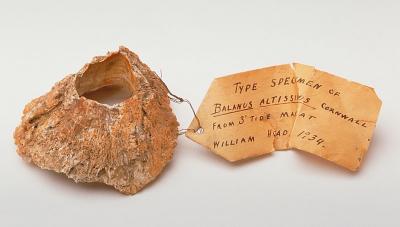 TYPE SPECIMEN OF
BALANUS ALTISSIUS CORNWALL
FROM 3' TIDE MARK AT
WILLIAM HEAD, 1934.